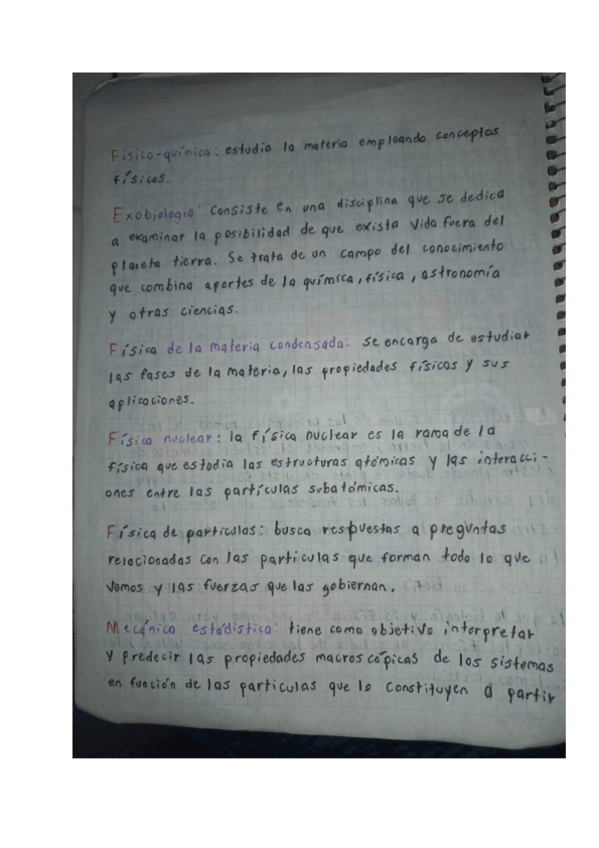 Físico-química: estudio la materia empleando conceptos
físicos.
Exobiología: Consiste en una disciplina que se dedica
a examinar la posibilidad de que exista vida fuera del
planeta tierra. Se trata de un campo del conocimiento
que combina aportes de la química, física, astronomía
y otras ciencias.
Física de la materia condensada: se encarga de estudiar
las fases de la materia, las propiedades físicas y sus
aplicaciones.
Física nuclear: la física nuclear es la rama de la
física que estudia las estructuras atómicas y las interacci-
ones entre las partículas subatómicas.
Física de partículas: busca respuestas a preguntas
relacionadas con las partículas que forman todo lo que
vemos y las fuerzas que las gobiernan.
Mecánica estadística: tiene como objetivo interpretar
y predecir las propiedades macroscópicas de los sistemas
en función de las partículas que lo constituyen a partir